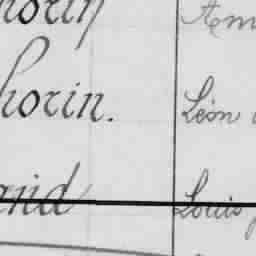 horin Am
horin. Léon
and Louis